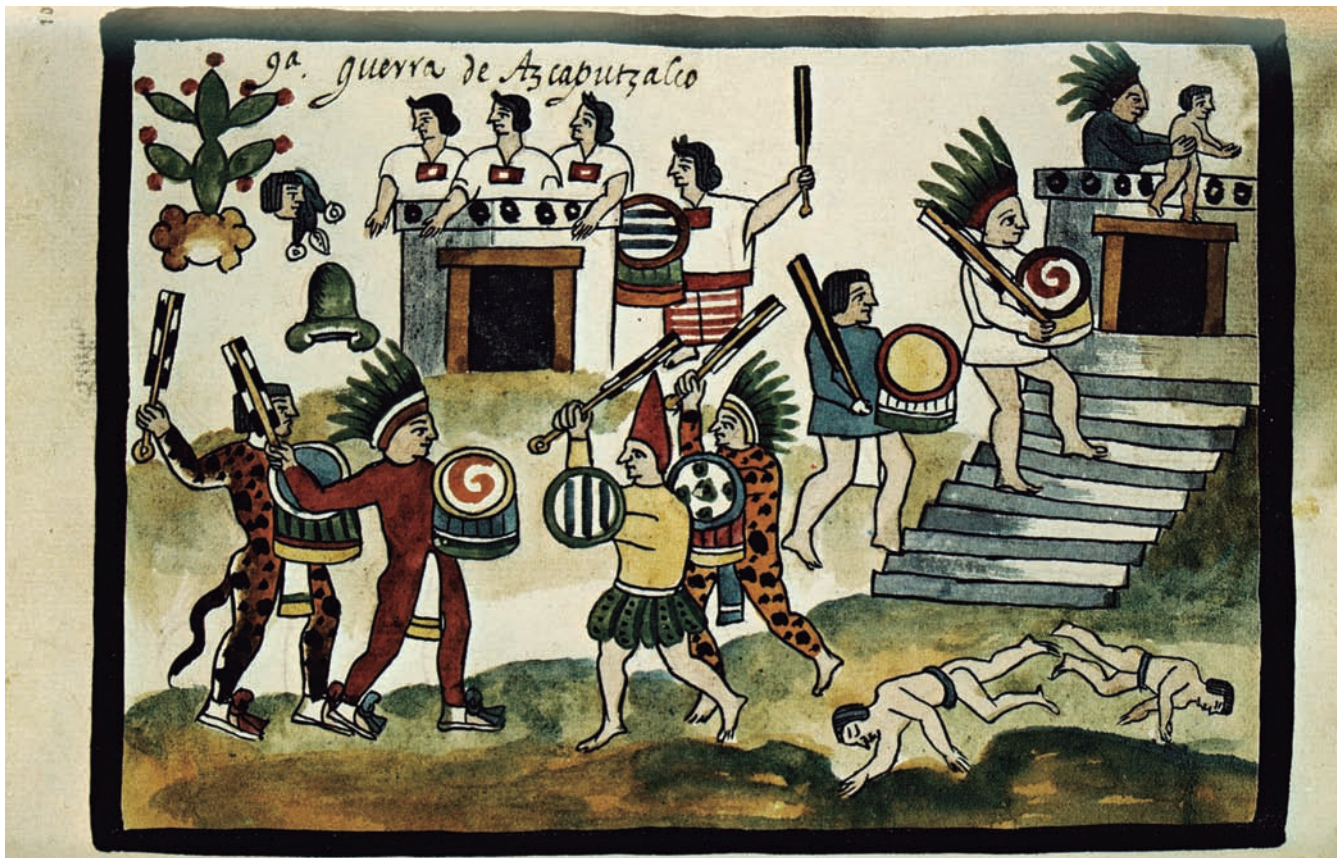 9a. guerra de Azcaputzalco
10